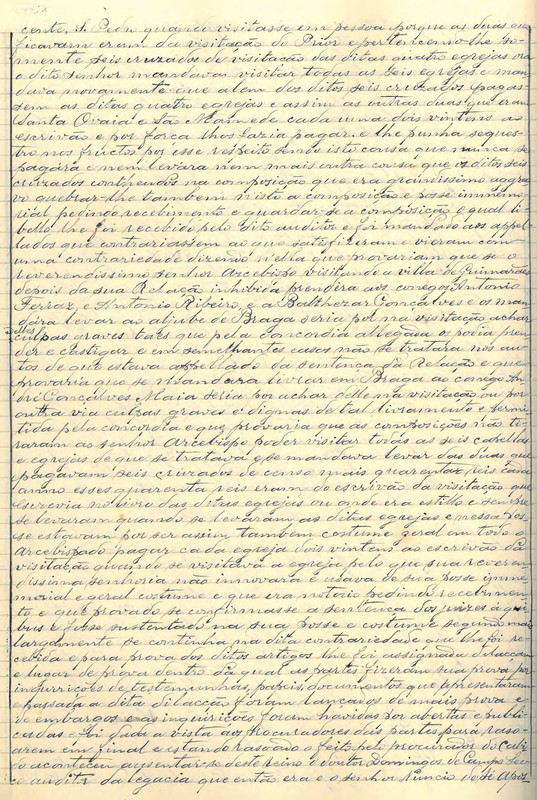 cento. S. Pedro quando visitasse em pessoa porque as duas que
ficavam eram da visitação do Prior e pertencem-lhe so-
mente seis cruzados de visitação das ditas quatro egrejas ora
o dito senhor mandava visitar todas as seis egrejas e man
dava novamente que alem dos ditos seis cruzados pagas-
sem as ditas quatro egrejas e assim as outras duas que eram
Santa Ovaia e São Mamede cada uma dois vintens ao
escrivão e por força lhos fazia pagar e lhe punha seques-
tro nos fructos por esse respeito sendo isto cousa que nunca se
pagára e nem levara nem mais outra cousa que os ditos seis
cruzados conteudos na composição que era grandissimo aggra
vo quebrar-lhe tambem nisto a composição e posse immemo-
rial pedindo recebimento e guardar-se a composição o qual li-
bello lhe foi recebido pelo dito auditor e foi mandado aos appel-
lados que contrariassem ao que satisfizeram e vieram com
uma contrariedade dizendo n'ella que provariam que se o
reverendissimo senhor Arcebispo visitando a villa de Guimarães
depois da sua Relação inhibida prendira aos conegos Antonio
Ferraz, e Antonio Ribeiro, e a Balthezar Gonçalves e os man
dára levar ao aljube de Braga seria por na visitação achar
d'elles culpas graves taes que pela concordia allegada os podia pren
der e castigar e em semelhantes casos não se tratara nos au-
tos de que estava appellado da sentença da Relação e que
provaria que se mandara livrar em Braga ao conego An
dré Gonçalves Maia seria por achar delle na visitação ou por
outra via culpas graves e dignas de tal livramento e permit
tida pela concordia e que provaria que as composições não ti-
raram ao senhor Arcebispo poder visitar todas as seis capellas
e egrejas de que se tratava e se mandava levar das duas que
pagavam seis cruzados de censo mais quarenta reis cada
anno esses quarenta reis eram do escrivão da visitação que
escrevia no livro das ditas egrejas ou onde era estillo e sempre
se levaram quando se levaram as ditas egrejas e nessa pos-
se estavam por ser assim tambem costume geral em todo o
Arcebispado pagar cada egreja dois vintens ao escrivão da
visitação quando se visitava a egreja pelo que sua reveren
dissima senhoria não innovara e usava de sua posse imme
morial e geral costume e que era notorio pedindo recebimen-
to e que provado se confirmasse a sentença dos juizes a qui
bus e fosse sustentado na sua posse e costume segundo mais
largamente se continha na dita contrariedade que lhe foi re-
cebida e para prova dos ditos artigos lhe foi assignada dilacção
e lugar de prova dentro da qual as partes fizeram sua prova por
inquirições de testemunhas, papeis, documentos que apresentaram
e passada a dita dilacção foram lançados de mais prova e
de embargos e as inquirições foram havidas por abertas e publi
cadas e foi dada a vista aos Procuradores das partes para raso-
arem em final e estando rasoado o feito pelo procurador do Cabi
do aconteceu ausentar-se deste reino o doutor Domingos de Campo
auditor da legacia que então era e o senhor Nuncio de Sé Apos-